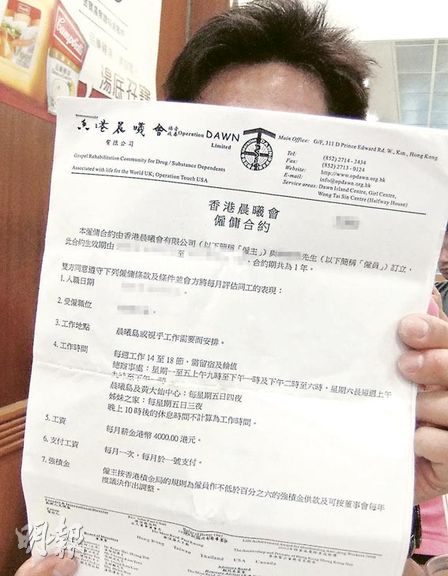 Campbell's
香港晨曦會
有限公司
Operation DAWN
Limited
Gospel Rehabilitation Community for Drug / Substance Dependents
Associated with life for the World UK; Operation Touch USA
Main Office: G/F, 311 D Prince Edward Rd. W., Kln., Hong Kong
Tel: (852) 2714 - 2434
Fax: (852) 2713 - 9124
Website: http://www.opdawn.org.hk
E-mail: info@opdawn.org.hk
Service areas: Dawn Island Centre, Girl Centre,
Wong Tai Sin Centre (Halfway House)
香港晨曦會
僱傭合約
本僱傭合約由香港晨曦會有限公司(以下簡稱「僱主」)與 先生(以下簡稱「僱員」)訂立，
此合約生效期由 至 ，合約期共為1年。
雙方同意遵守下列僱傭條款及條件並會方將每月評估同工的表現：
1.入職日期
2.受僱職位
3.工作地點 晨曦島或視乎工作需要而安排。
4.工作時間 每週工作14至18節，需留宿及輪值
總辦事處：星期一至五上午九時至下午一時及下午二時至六時，星期六長短週上午
晨曦島及黃大仙中心：每星期五日四夜
姊妹之家：每星期五日三夜
晚上10時後的休息時間不計算為工作時間。
5.工資 每月薪金港幣4000.00港元。
6.支付工資 每月一次，每月於一號支付。
7.強積金 僱主按香港積金局的規則為僱員作不低於百分之六的強積金供款及可按董事會每年
度議決作出調整。
Hong Kong Taiwan Thailand USA Canada
明報